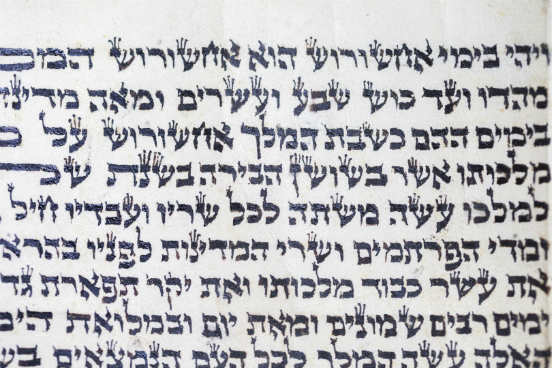 ויהי בימי אחשורוש הוא אחשורוש
מהדו ועד כוש שבע ועשרים ומאה מדינה
בימים ההם כשבת המלך אחשורוש על כ
מלכותו אשר בשושן הבירה בשנת
למלכו עשה משתה לכל שריו ועבדיו חיל
ומדי הפרתמים ושרי המדינות לפניו בהרא
את עשר כבוד מלכותו ואת יקר תפארת גד
ימים רבים שמונים ומאת יום ובמלואת הימ
האלה עשה המלך לכל העם הנמצאים בש